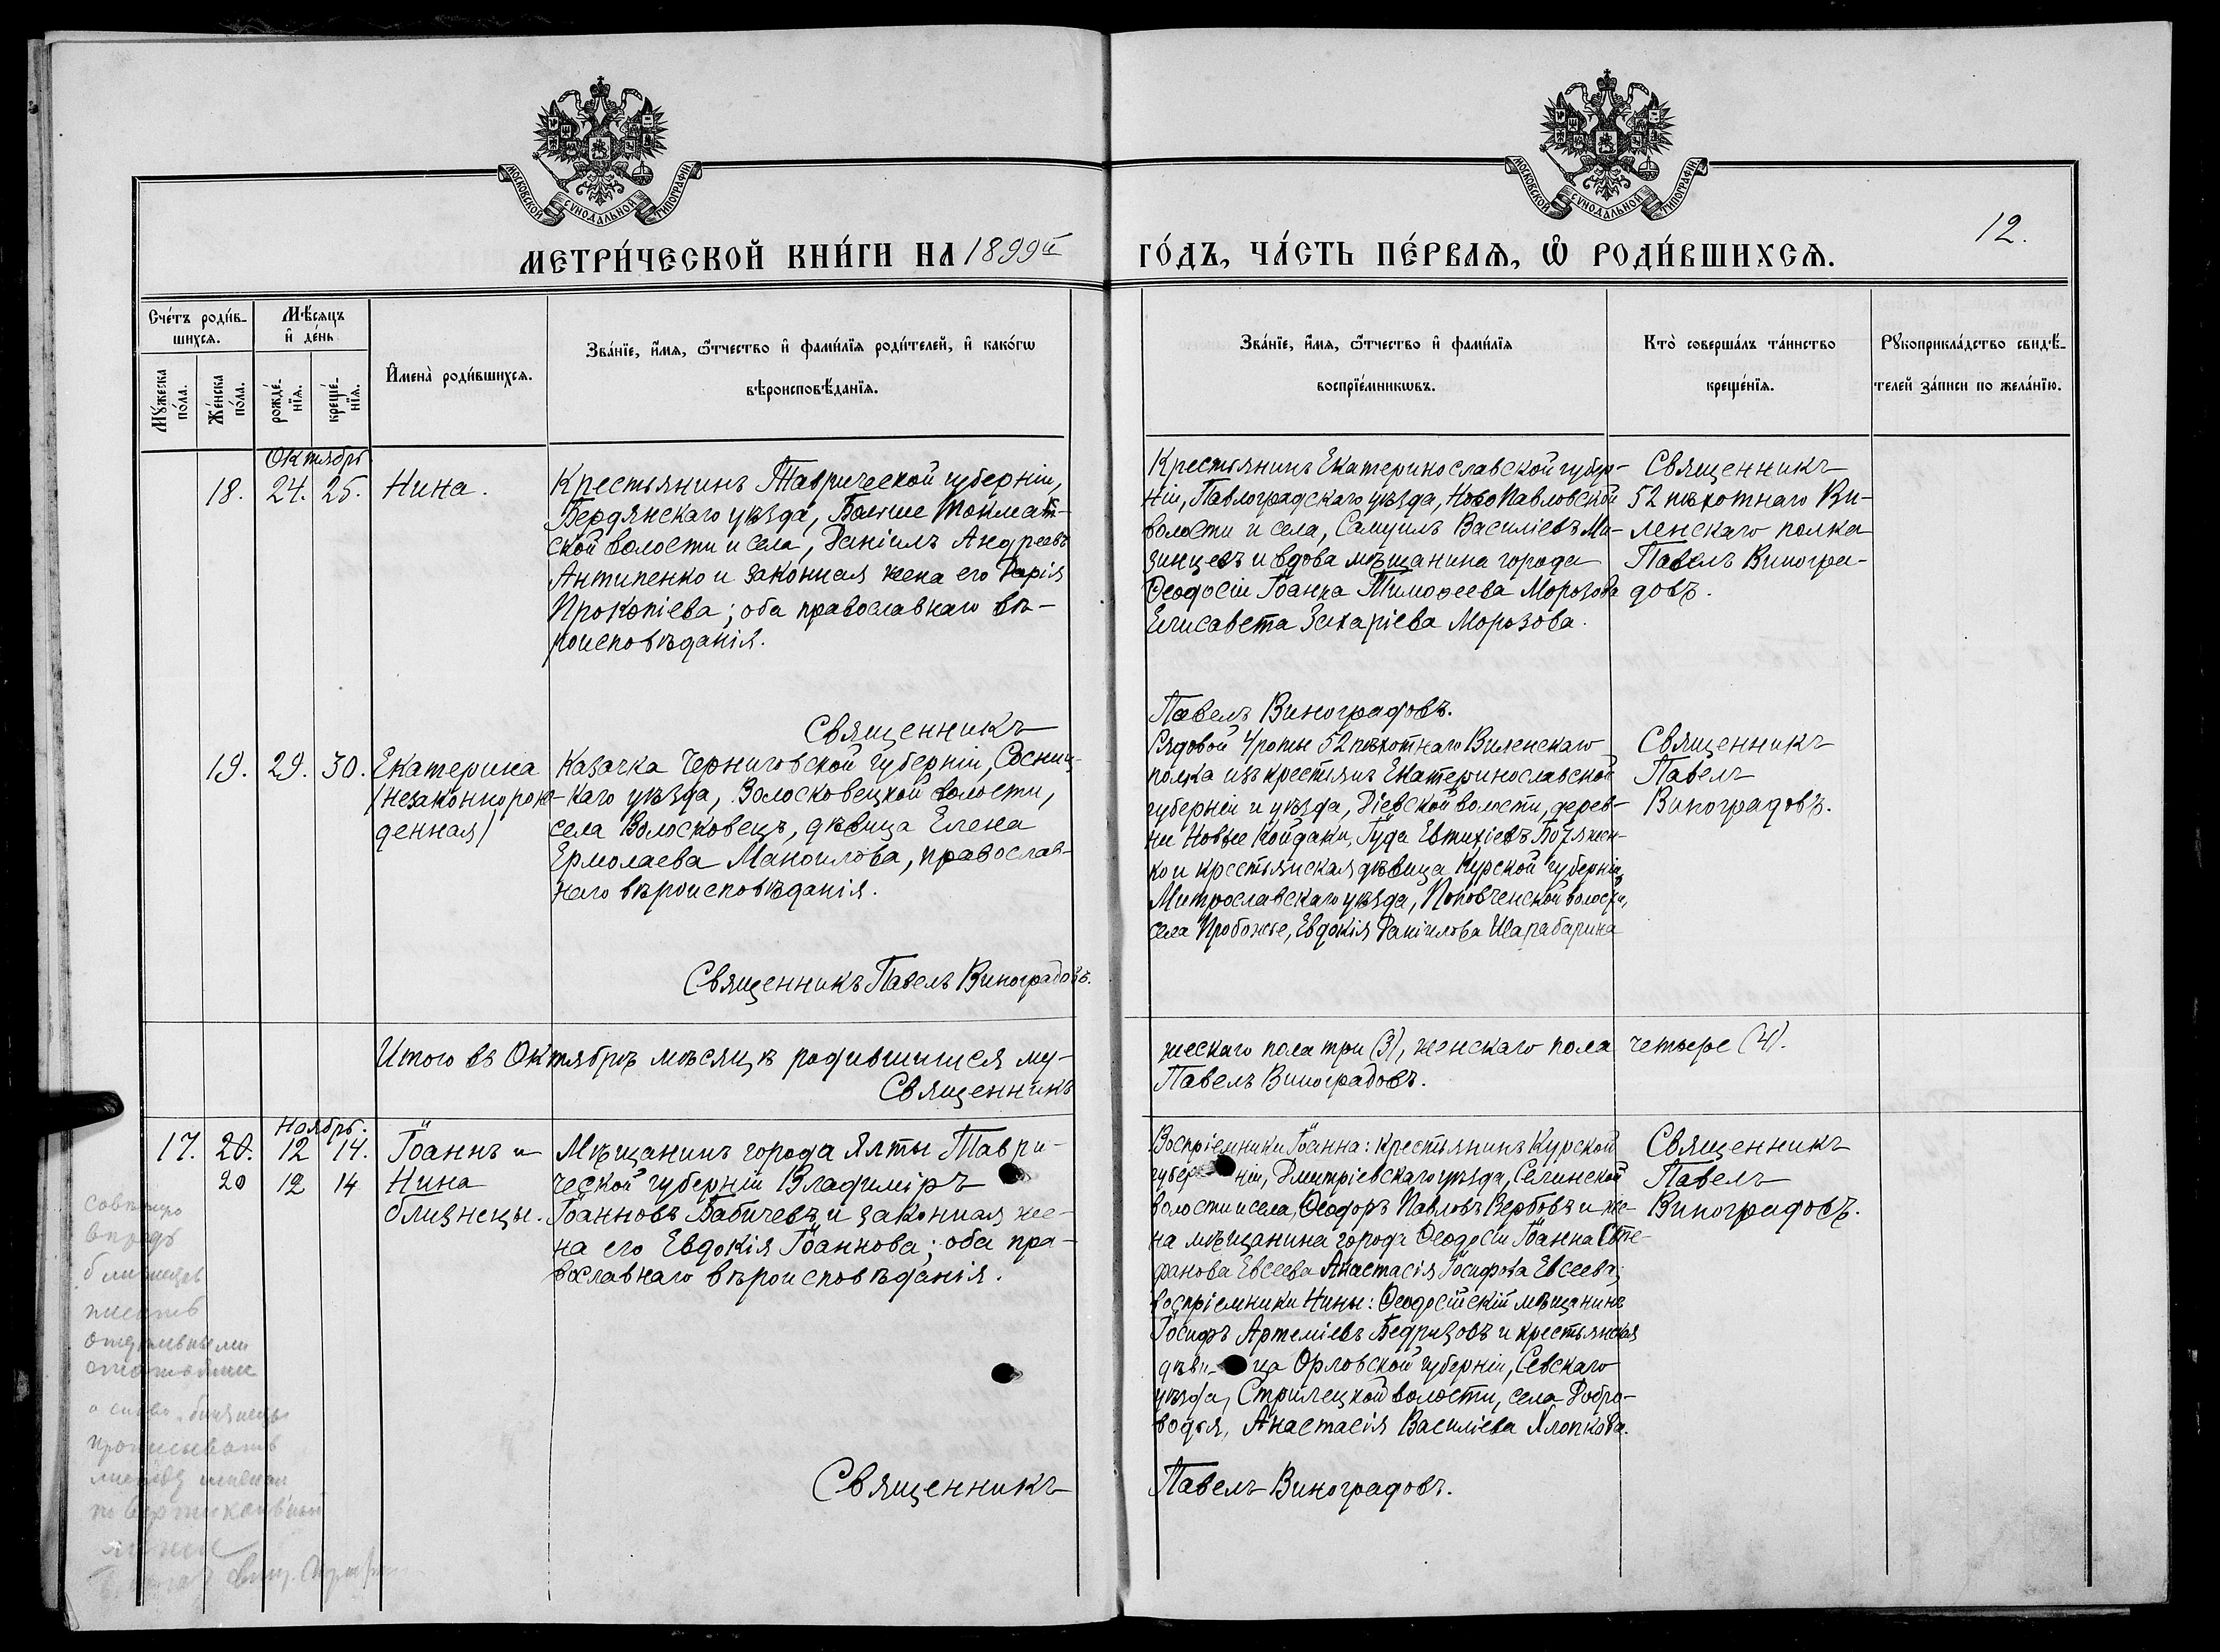 МОСКОВСКОЙ СѴНОДАЛЬНОЙ ТИПОГРАФІИ
МОСКОВСКОЙ СѴНОДАЛЬНОЙ ТИПОГРАФІИ
12.
МЕТРИ́ЧЕСКОЙ КНИ́ГИ НА 1899й ГО́ДЪ, ЧА́СТЬ ПЕ́РВАѦ, Ѽ РОДИ́ВШИХСѦ.
Сче́тъ роди́в-
шихсѧ.
Мѣ́сяцъ
и҆ де́нь
Мꙋ́жеска по́ла.
Же́нска по́ла.
рожде́-
нїѧ.
креще́-
нїѧ.
И҆мена̀ роди́вшихсѧ.
Зва́нїе, и҆́мѧ, ѻ҆́тчество и҆ фами́лїѧ роди́телей, и҆ како́гѡ
вѣроисповѣ́данїѧ.
Зва́нїе, и҆́мѧ, ѻ҆́тчество и҆ фами́лїѧ
воспрїе́мникѡвъ.
Кто̀ соверша́лъ та́инство
креще́нїѧ.
Рꙋкоприкла́дство свидѣ́-
телей за́писи по жела́нїю.
Октябрь
18. 24. 25. Нина.
Крестьянинъ Таврической губерніи,
Бердянскаго уѣзда, Больше Токмак-
ской волости и села, Даніилъ Андреевъ
Антипенко и законная жена его Дарія
Прокопіева; оба православнаго вѣ-
роисповѣданія.
Священникъ
Крестьянинъ Екатеринославской губер-
ніи, Павлоградскаго уѣзда, Ново Павловской
волости и села, Самуилъ Василіевъ Ми-
зинцевъ и вдова мѣщанина города
Ѳеодосіи Іоанна Тимоѳеева Морозова
Елисавета Захаріева Морозова.
Павелъ Виноградовъ.
Священникъ
52 пѣхотнаго Ви-
ленскаго полка
Павелъ Виногра-
довъ.
19. 29. 30. Екатерина
/незаконнорож-
денная/
Казачка Черниговской губерніи, Сосниц-
каго уѣзда, Волосковецкой волости,
села Волосковецъ, дѣвица Елена
Ермолаева Маноилова, православ-
наго вѣроисповѣданія.
Священникъ Павелъ Виноградовъ.
Рядовой 4 роты 52 пѣхотнаго Виленскаго
полка изъ крестьянъ Екатеринославской
губерніи и уѣзда, Діевской волости, дерев-
ни Новые Койдаки, Іуда Евтихіевъ
ко и крестьянская дѣвица Курской губерніи,
Митрославскаго уѣзда, Поповченской волости,
села Пробожье, Евдокія Даніилова Шарабарина
Священникъ
Павелъ
Виноградовъ.
Итого въ Октябрѣ мѣсяцѣ родившимися му-
Священникъ
жескаго пола три (3), женскаго пола четыре (4).
Павелъ Виноградовъ.
Ноябрь.
17. 20. 12 14. Іоаннъ и
20 12 14 Нина
близнецы.
Мѣщанинъ города Ялты Таври-
ческой губерніи Владиміръ
Іоанновъ Бабичевъ и законная же-
на его Евдокія Іоаннова; оба пра-
вославнаго вѣроисповѣданія.
Священникъ
Воспріемники Іоанна: крестьянинъ Курской
губерніи, Дмитріевскаго уѣзда, Селинской
волости и села, Ѳеодоръ Павловъ Вербовъ и же-
на мѣщанина города Ѳеодосіи Іоанна Сте-
фанова Евсеева Анастасія Іосифова Евсеева;
воспріемники Нины: Ѳеодосійскій мѣщанинъ
Іосифъ Артеміевъ Бедризовъ и крестьянская
дѣвица Орловской губерніи, Севскаго
уѣзда, Стрилецкой волости, села Добро-
водья, Анастасія Василіева Хлопкова.
Павелъ Виноградовъ.
Священникъ
Павелъ
Виноградовъ.
впредь
близнецовъ
писать
отдѣльными
прописывать
по вертикальной
линіи